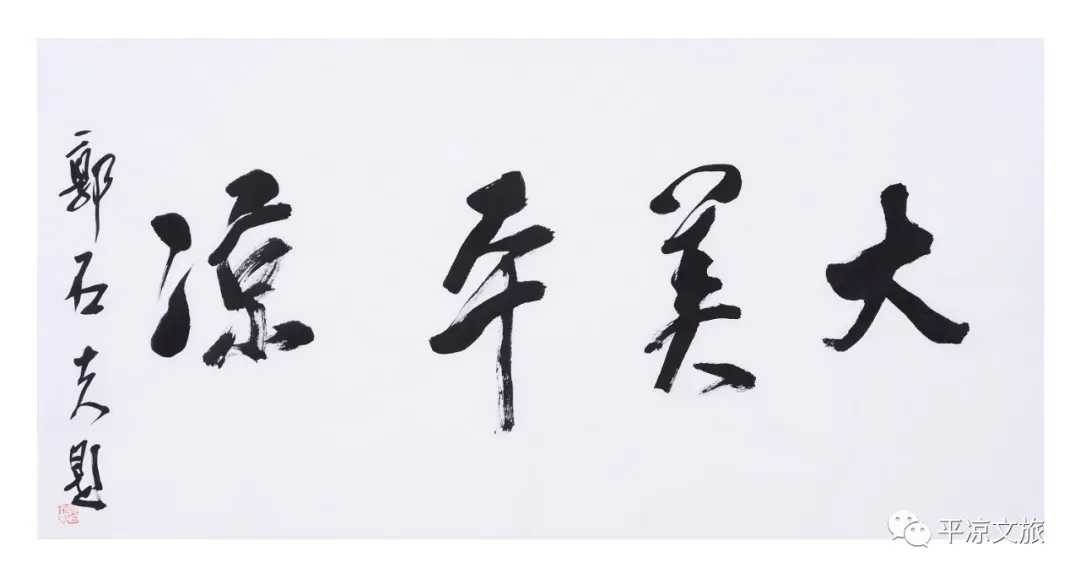 大美平凉
郭石夫题
平凉文旅